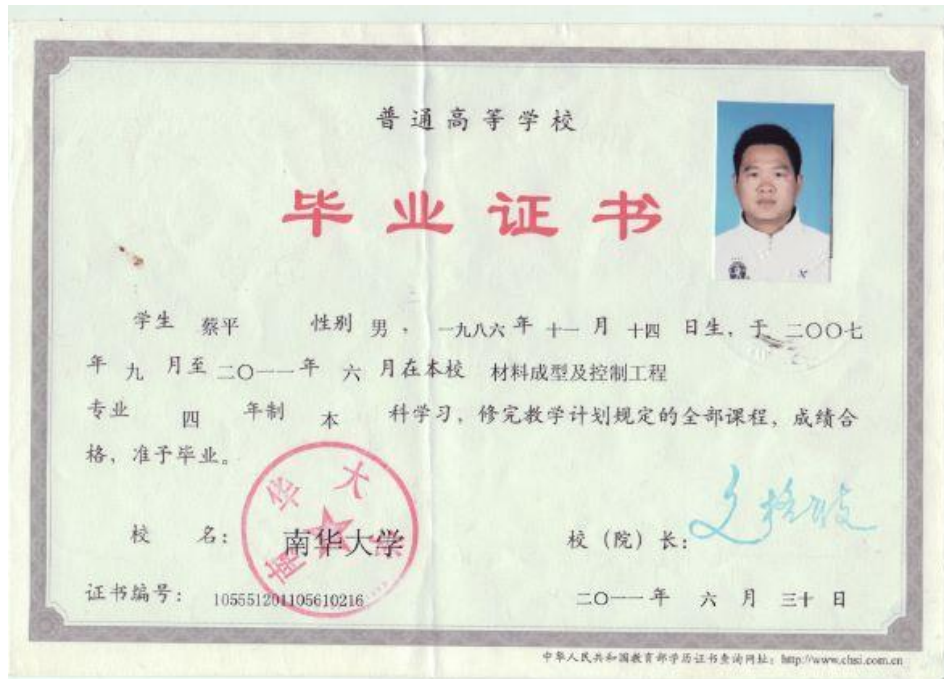 普通高等学校
毕业证书
学生 蔡平 性别 男 ， 一九八六 年 十一 月 十四 日生，于 二〇〇七
年 九 月至 二〇一一 年 六 月在本校 材料成型及控制工程
专业 四 年制 本 科学习，修完教学计划规定的全部课程，成绩合
格，准予毕业。
校 名： 南华大学 校（院）长：
证书编号： 105551201105610216 二〇一一 年 六 月 三十 日
中华人民共和国教育部学历证书查询网址：http://www.chsi.com.cn